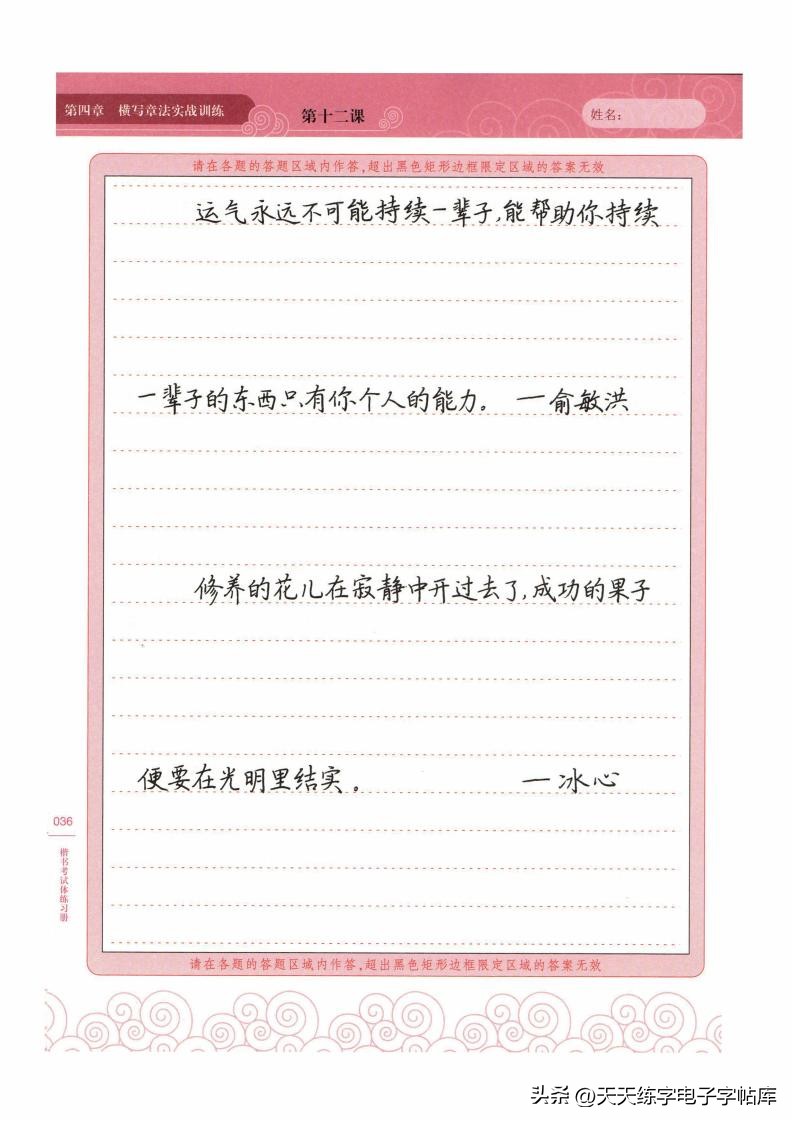 第四章 横写章法实战训练
第十二课
姓名:
请在各题的答题区域内作答,超出黑色矩形边框限定区域的答案无效
运气永远不可能持续一辈子,能帮助你持续
一辈子的东西只有你个人的能力。 —俞敏洪
修养的花儿在寂静中开过去了,成功的果子
便要在光明里结实。 —冰心
036
楷书考试体练习册
请在各题的答题区域内作答,超出黑色矩形边框限定区域的答案无效
头条 @天天练字电子字帖库